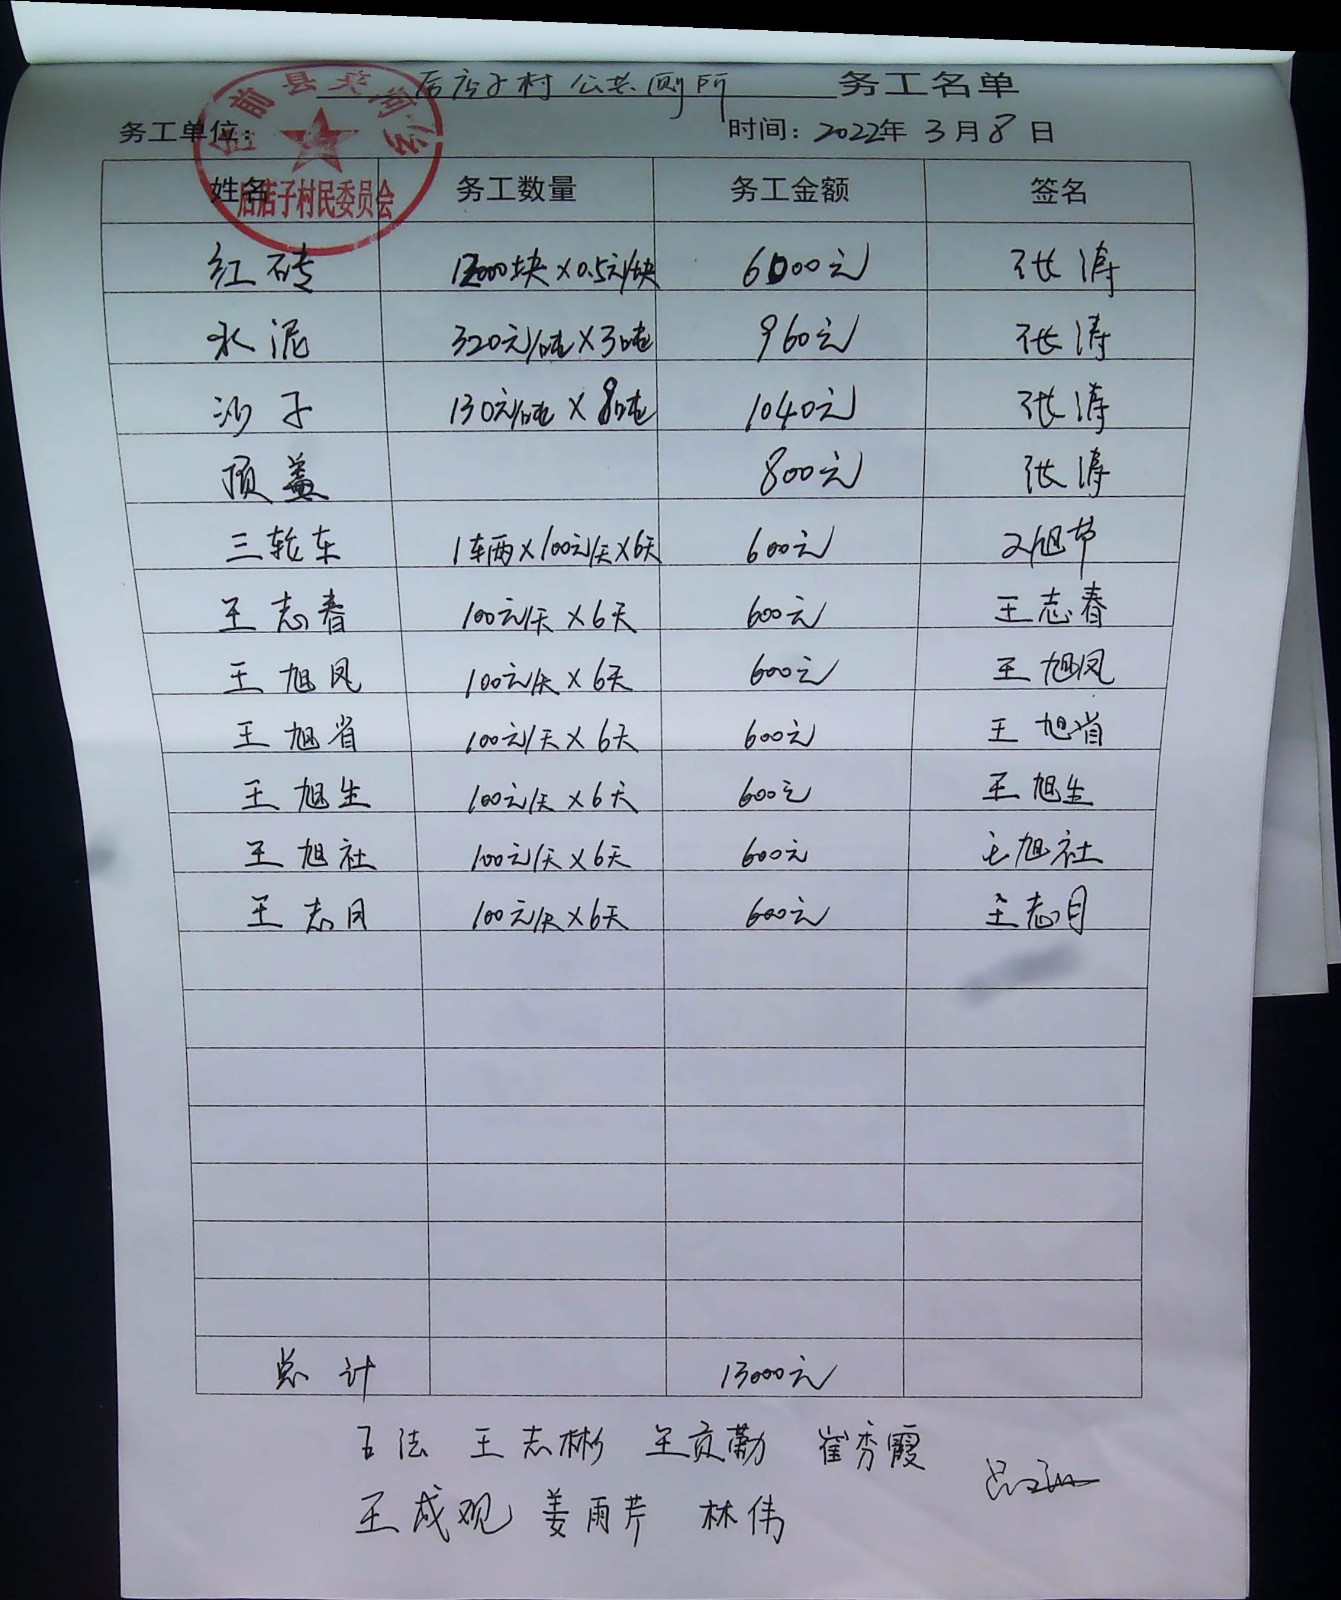 后店子村公共厕所 务工名单
务工单位: 时间: 2022年 3月 8日
后店子村民委员会
姓名 务工数量 务工金额 签名
红砖 12000块×0.5元/块 6000元 张涛
水泥 320元/吨×3吨 960元 张涛
沙子 130元/吨×8吨 1040元 张涛
顶盖 800元 张涛
三轮车 1车辆×100元/天×6天 600元
王志春 100元/天×6天 600元 王志春
王旭凤 100元/天×6天 600元 王旭凤
王旭省 100元/天×6天 600元 王旭省
王旭生 100元/天×6天 600元 王旭生
王旭社 100元/天×6天 600元 王旭社
王志月 100元/天×6天 600元 王志月
总计 13000元
王志彬 王贡勤 崔秀霞
王成观 姜雨芹 林伟